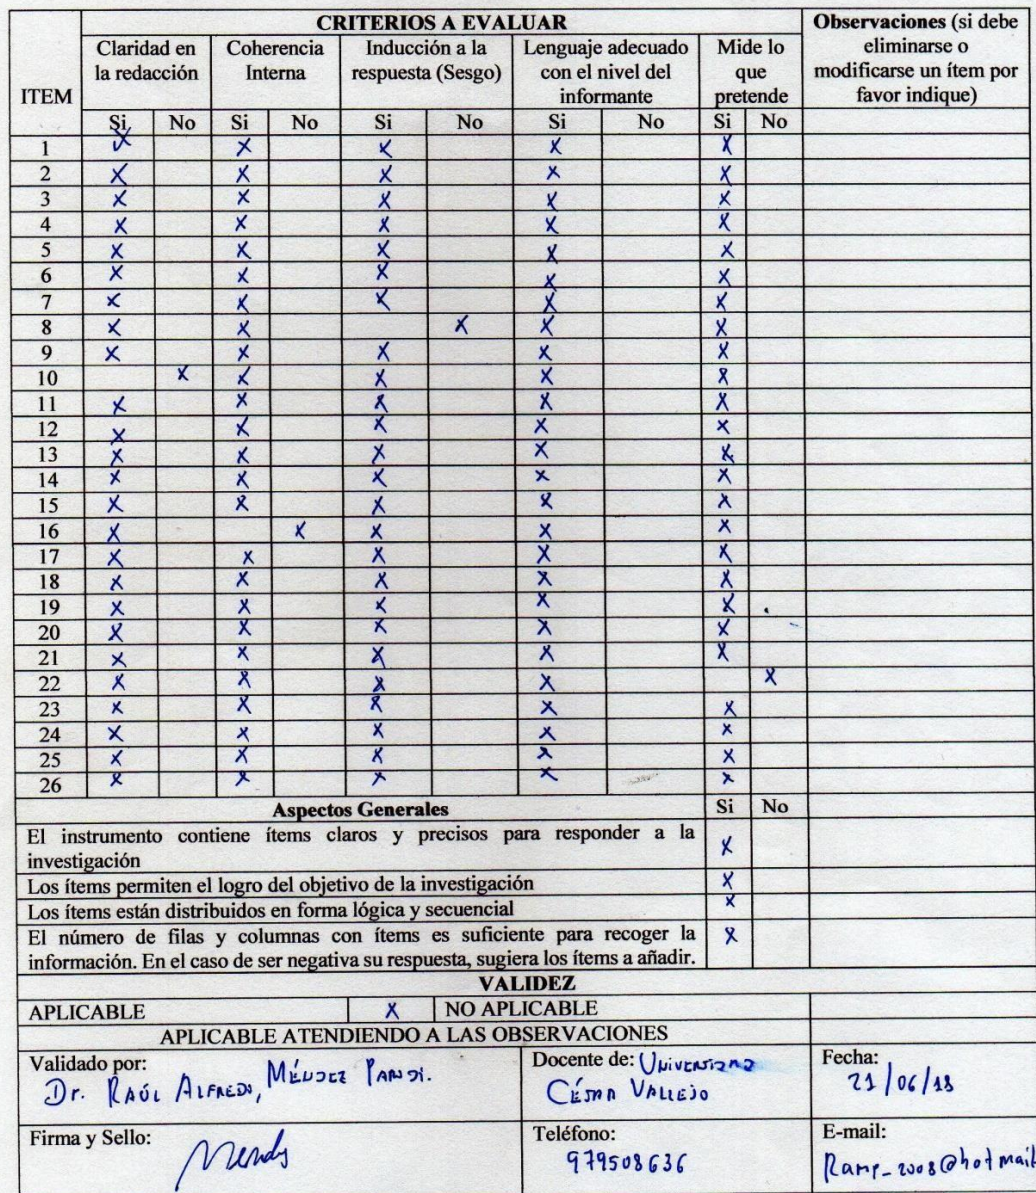 CRITERIOS A EVALUAR
Observaciones (si debe
eliminarse o
modificarse un ítem por
favor indique)
ITEM
Claridad en
la redacción
Coherencia
Interna
Inducción a la
respuesta (Sesgo)
Lenguaje adecuado
con el nivel del
informante
Mide lo
que
pretende
Si No Si No Si No Si No Si No
1 X X X X X
2 X X X X X
3 X X X X X
4 X X X X X
5 X X X X X
6 X X X X X
7 X X X X X
8 X X X X X
9 X X X X X
10 X X X X X
11 X X X X X
12 X X X X X
13 X X X X X
14 X X X X X
15 X X X X X
16 X X X X X
17 X X X X X
18 X X X X X
19 X X X X X
20 X X X X X
21 X X X X X
22 X X X X X
23 X X X X X
24 X X X X X
25 X X X X X
26 X X X X X
Aspectos Generales Si No
El instrumento contiene ítems claros y precisos para responder a la
investigación X
Los ítems permiten el logro del objetivo de la investigación X
Los ítems están distribuidos en forma lógica y secuencial X
El número de filas y columnas con ítems es suficiente para recoger la
información. En el caso de ser negativa su respuesta, sugiera los ítems a añadir. X
VALIDEZ
APLICABLE X NO APLICABLE
APLICABLE ATENDIENDO A LAS OBSERVACIONES
Validado por:
Dr. RAÚL ALFREDO, MÉNDEZ
Docente de: UNIVERSIDAD
CÉSAR VALLEJO
Fecha:
21/06/18
Firma y Sello:
Teléfono:
979508636
E-mail:
Ramp_2008@hotmail